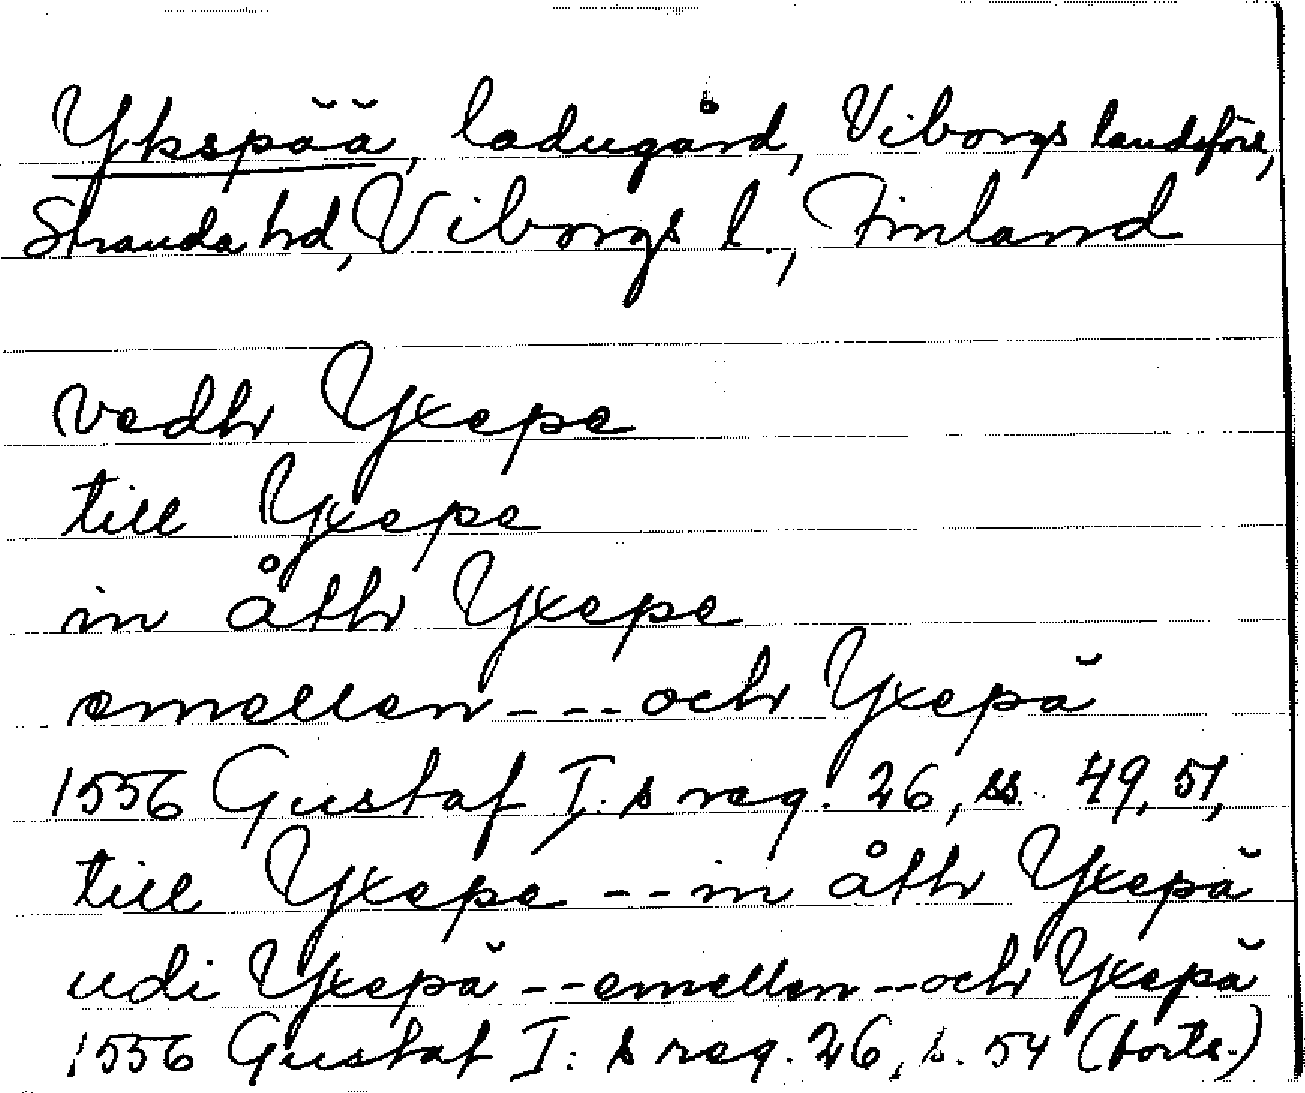 Ykspää, ladugård, Viborgs landsförs.,
Stranda hd, Viborgs l., Finland
vedh Yxepe
till Yxepe
in åth Yxepe
emellen - - - och Yxepä
1556 Gustaf I:s reg. 26, ss. 49, 51,
till Yxepe - - in åth Yxepä
udi Yxepä - - emellen - - och Yxepä
1556 Gustaf I:s reg. 26, s. 54 (forts.)